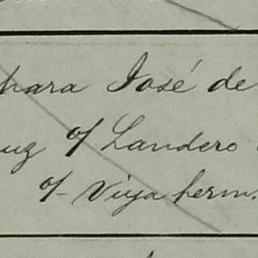 para José de
uz of Landero
of Viya perm.